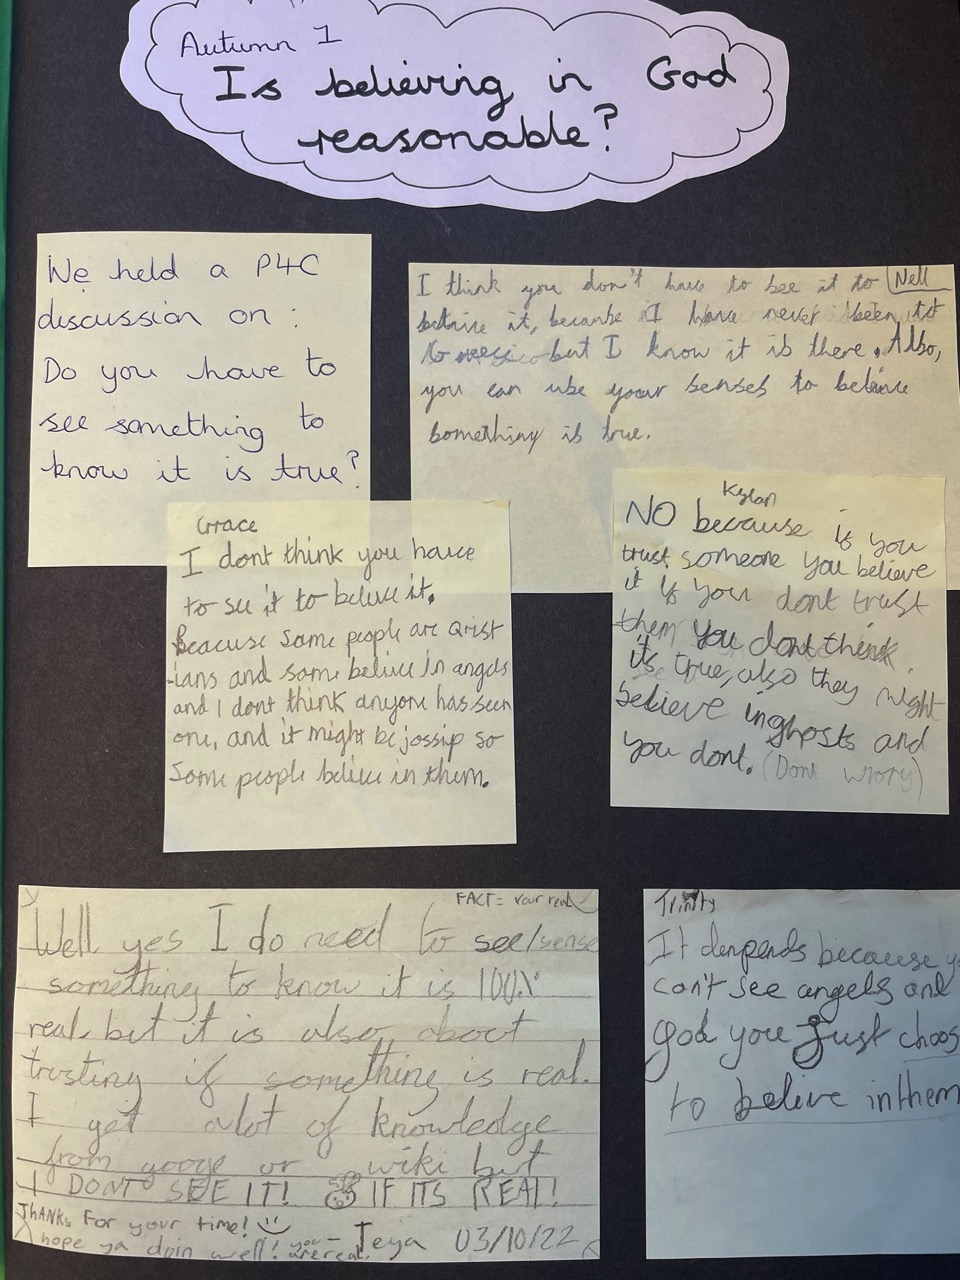 Autumn 1
Is believing in God
reasonable?
We held a P4C
discussion on:
Do you have to
see something to
know it is true?
I think you don't have to see it to Nell
beleive it, because I have never been to
but I know it is there. Also,
you can use your senses to beleive
something is true.
Grace
I dont think you have
to see it to believe it.
Beacuse some people are Qrist
-ians and some belive in angels
and I dont think anyone has seen
one, and it might be jossip so
some people belive in them.
Kylan
NO because if you
trust someone you believe
it if you dont trust
them you dont think
its true, also they might
believe in ghosts and
you dont. (Dont wrory)
FACT = your real
Well yes I do need to see/sense
something to know it is 100%
real but it is also about
trusting if something is real.
I get alot of knowledge
from googe or wiki but
I DONT SEE IT! IF ITS REAL!
THANKS For your time!
hope ya doin well! you are real. - Teya 03/10/22
Trinity
It denpends because
can't see angels and
god you Just choos
to belive in them